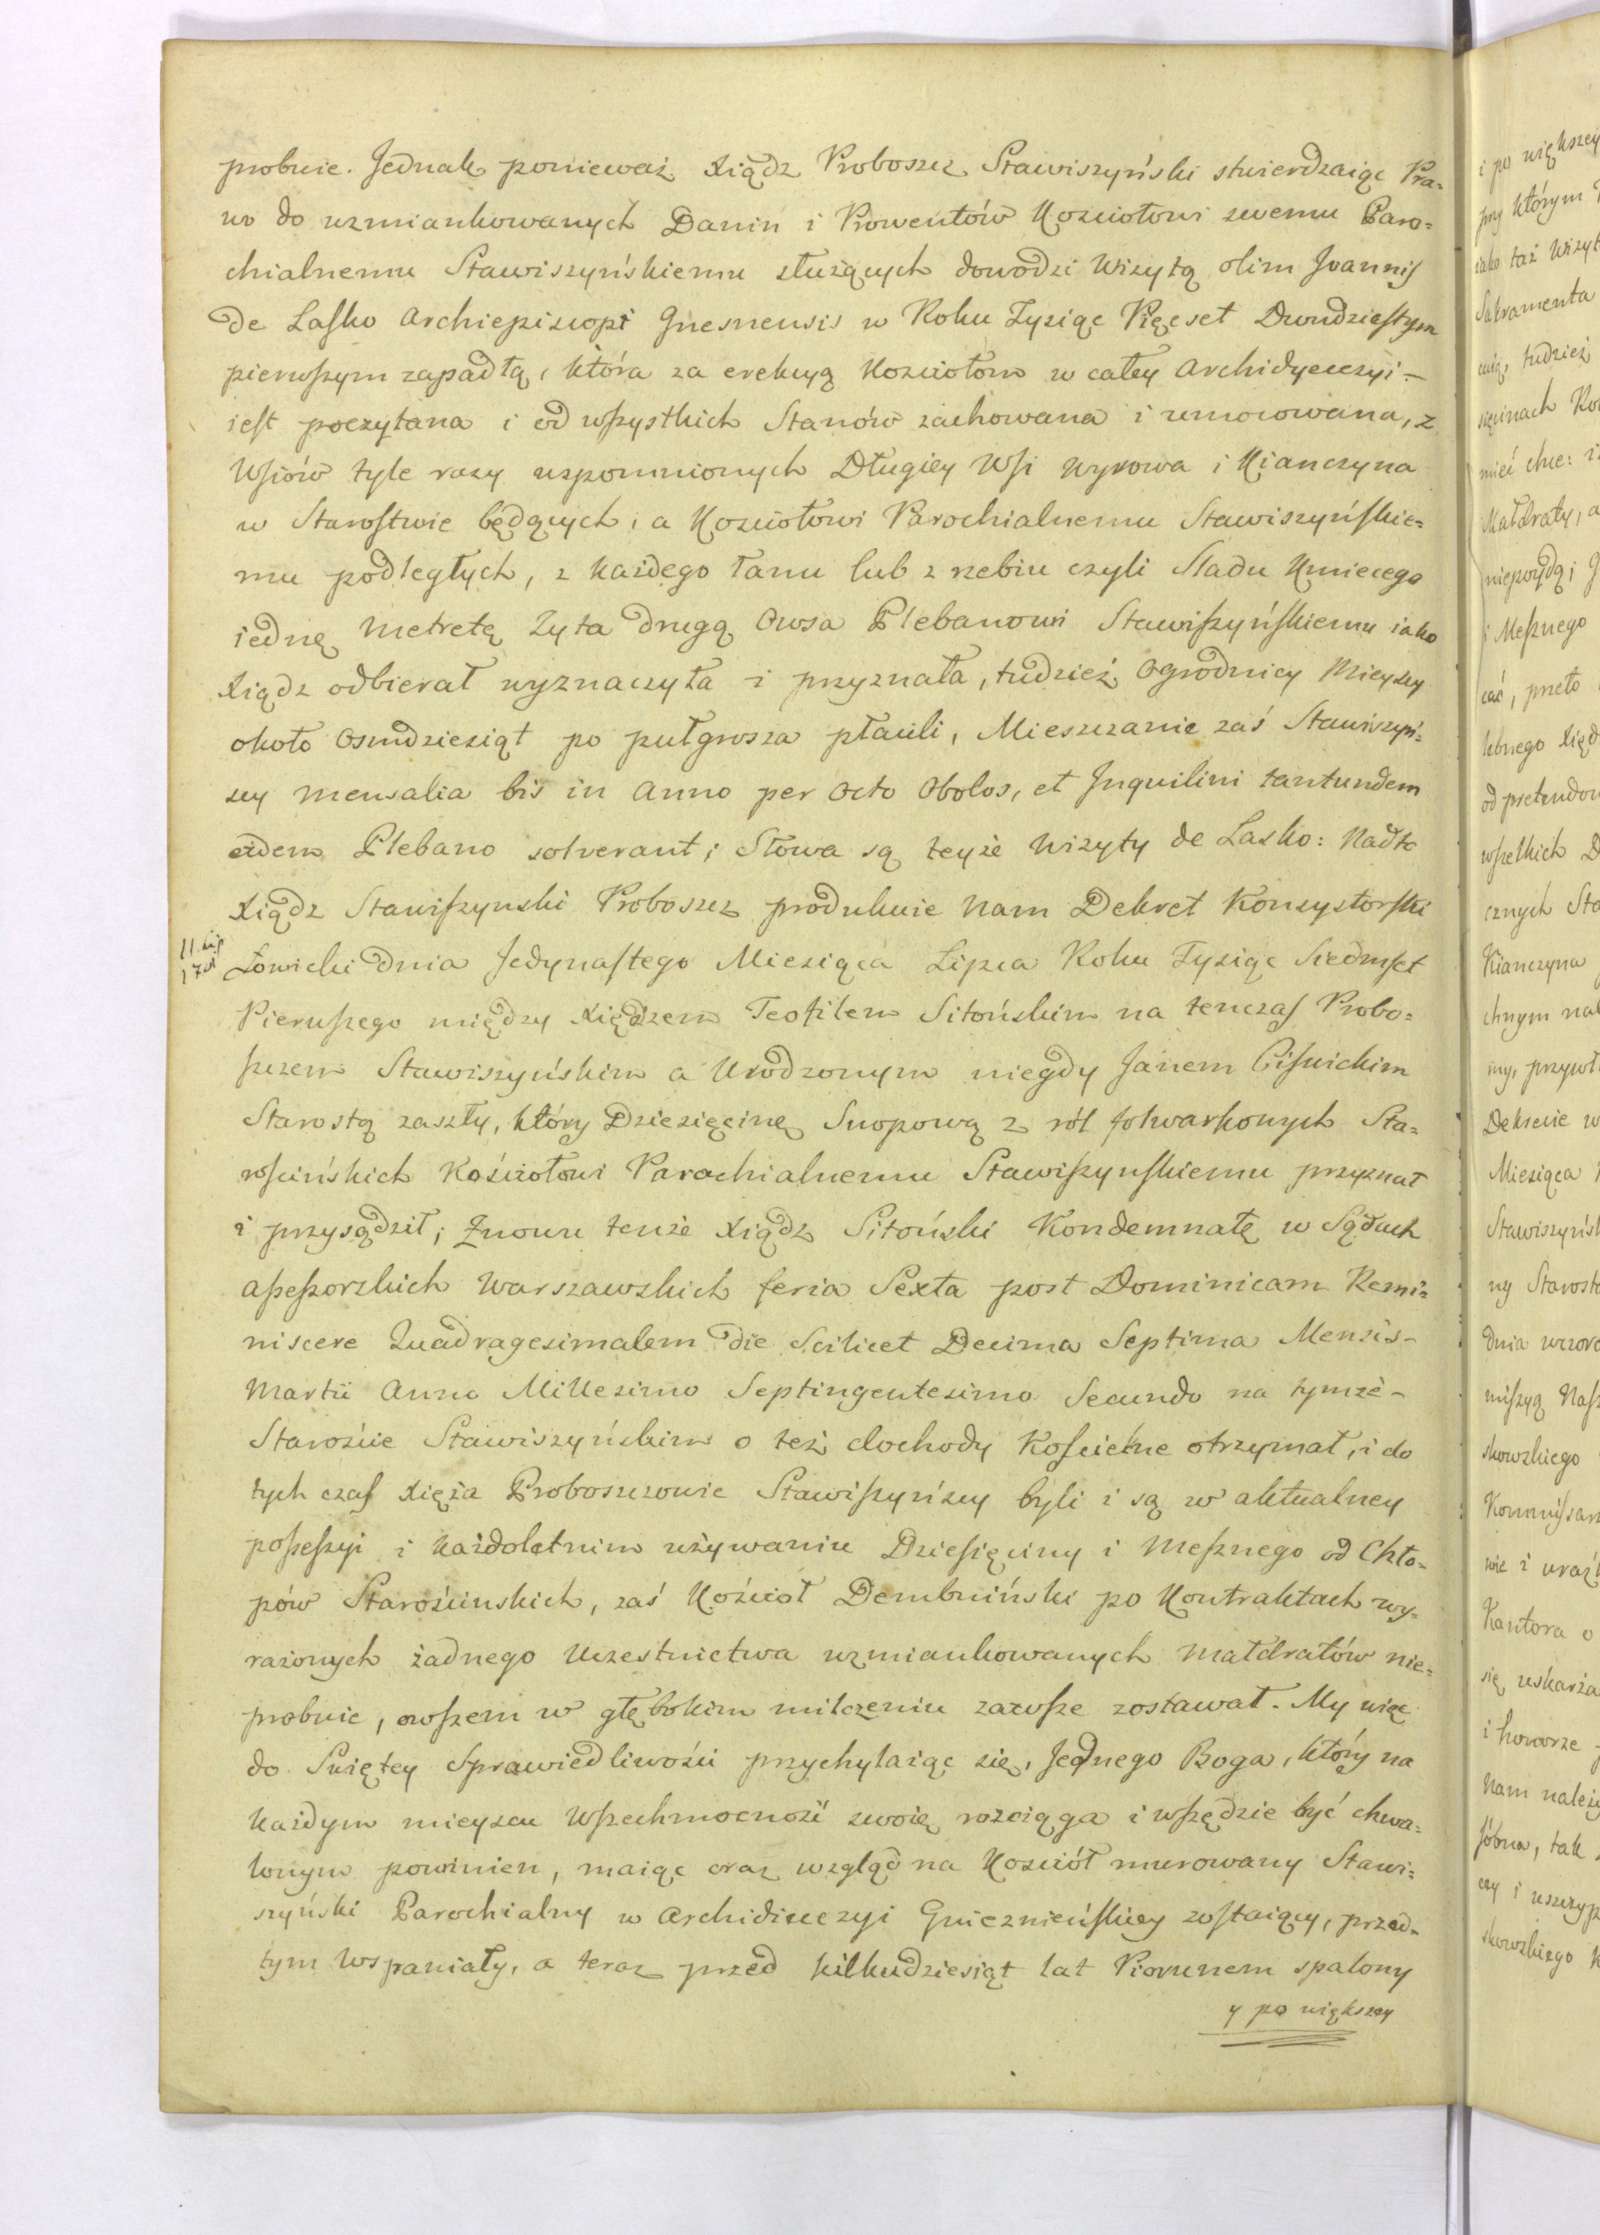 probuie. Jednak ponieważ Xiądz Proboszcz Stawiszyński stwierdzaiąc Pra=
wo do wzmiankowanych Danin i Prowentów Kosciołowi swemu Paro=
chialnemu Stawiszyńskiemu służących dowodzi Wizytą olim Joannis
de Lasko Archiepiscopi Gnesnensis w Roku Tysiąc Pięcset Dwudziestym
pierwszym zapadłą, która za erekcyą Kosciołow w całey Archidyecezyi -
iest poczytana i od wszystkich Stanów zachowana i umocowana, z
Wsiów tyle razy wspomnionych Długiey Wsi Wyrowa i Kianczyna
w Starostwie będących, a Kosciołowi Parochialnemu Stawiszyńskie=
mu podległych, z każdego łanu lub z rzebiu czyli Sladu Kmiecego
iednę Metretę Zyta drugą Owsa Plebanowi Stawiszyńskiemu iako
Xiądz odbierał wyznaczyła i przyznała, tudzież Ogrodnicy Mieyscy
około Osmdziesiąt po pułgrosza płacili, Mieszczanie zaś Stawiszyń=
scy mensalia bis in Anno per Octo Obolos, et Inquilini tantundem
eidem Plebano solverant; Słowa są teyże Wizyty de Lasko: Nadto
Xiądz Stawiszynski Proboszcz produkuie Nam Dekret Konsystorski
11 Lip 1701
Łowicki dnia Jedynastego Miesiąca Lipca Roku Tysiąc Siedmset
Pierwszego między Xiędzem Teofilem Sitońskim na tenczas Probo=
szczem Stawiszyńskim a Urodzonym niegdy Janem Ciświckim
Starostą zaszły, który Dziesięcinę Snopową z ról folwarkowych Sta=
rościńskich Kościołowi Parochialnemu Stawiszynskiemu przyznał
i przysądził; Znowu tenże Xiądz Sitoński Kondemnatę w Sądach
Assessorskich Warszawskich feria Sexta post Dominicam Remi=
niscere Quadragesimalem die Scilicet Decima Septima Mensis -
Martii Anno Millesimo Septingentesimo Secundo na tymże -
Staroście Stawiszyńskim o też dochody Kościelne otrzymał, i do
tych czas Xięża Proboszczowie Stawiszyńscy byli i są w aktualney
possessyi i każdoletnim używaniu Dziesięciny i Mesznego od Chło=
pów Starościnskich, zaś Kościoł Dembniński po Kontraktach wy=
rażonych żadnego Uczestnictwa wzmiankowanych Małdratów nie=
probuie, owszem w głębokim milczeniu zawsze zostawał. My więc
do Swiętey Sprawiedliwości przychylaiąc się, Jednego Boga, który na
każdym mieyscu Wszechmocność swoię rozciąga i wszędzie być chwa=
lonym powinien, maiąc oraz wzgląd na Kosciół murowany Stawi=
szyński Parochialny w Archidiecezyi Gnieznieńskiey zostaiący, przed=
tym Wspaniały, a teraz przed kilkudziesiąt lat Piorunem spalony
y po większey
i po większey
przy którym
iako taż Wizyt
Sakramenta
tudzież
Małdraty, a
i Mesznego
cać, przeto
od pretendow
wszelkich D
cznych Sta
Kianczyna
chnym nal
my, przywł
Dekrecie w
Miesiąca
Stawiszyńsk
ny Starosta
dnia wczora
skowskiego
Kommissar
Kantora o
się uskarża
i honorze
Nam należy